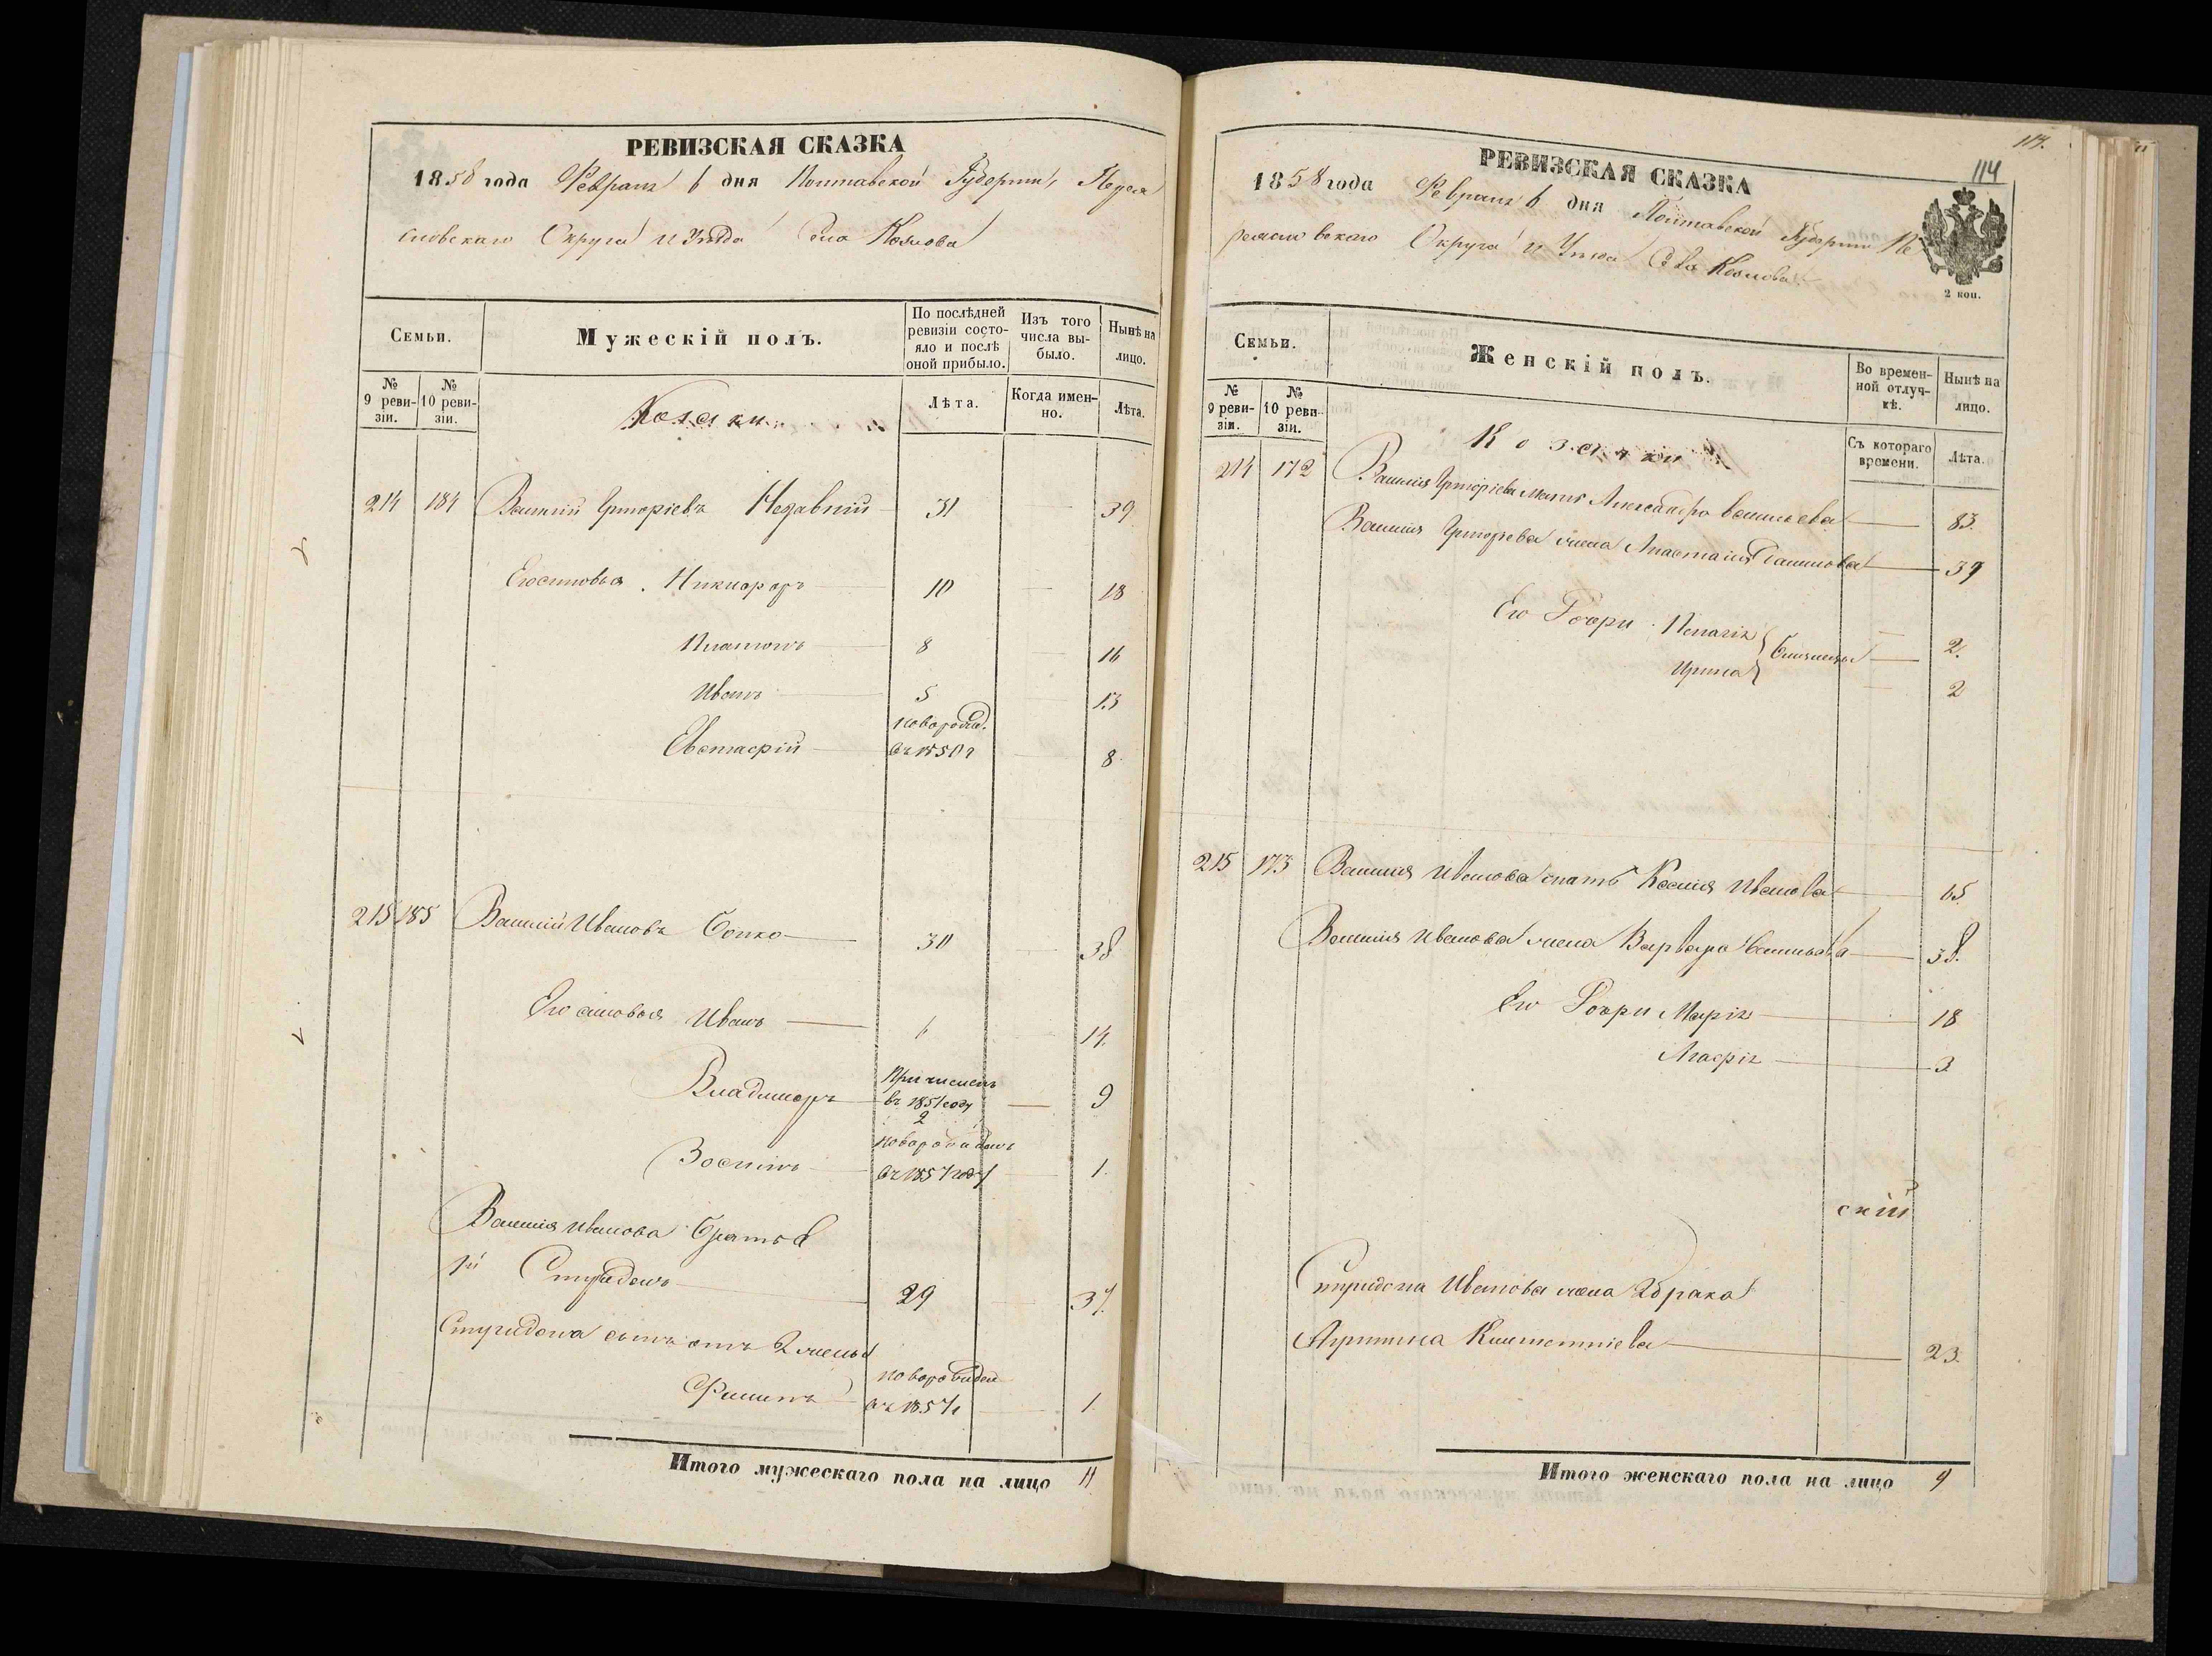 РЕВИЗСКАЯ СКАЗКА
1858 года Февраля 6 дня Полтавской Губерніи, Перея
словскаго Округа и Уѣзда Села Козлова
Семьи.
Мужескій полъ.
По послѣдней ревизіи состояло и послѣ оной прибыло.
Изъ того числа выбыло.
Нынѣ на лицо.
№ 9 ревизіи.
№ 10 ревизіи.
Козаки
Лѣта.
Когда именно.
Лѣта.
214 184 Василій Григоріевъ 31 39
Его сыновья Никифоръ 10 18
Платонъ 8 16
Иванъ 5 13
новорожд.
Евстафій съ 1850 г 8
215 185 Василій Ивановъ Сопко 30 38
Его сыновья Иванъ 6 14.
Причисленъ
Владиміръ въ 1851 году 9
2
новорожденъ
Зосимъ съ 1857 году 1.
Василія Иванова Братья
1й Спиридонъ 29 37.
Спиридона сынъ отъ 2 жены
новорожден
Филипъ съ 1857 г 1
Итого мужескаго пола на лицо 11
114.
114
РЕВИЗСКАЯ СКАЗКА
1858 года Февраля 6 дня Полтавской Губерніи Пе
реяславскаго Округа и Уѣзда Села Козлова
2 коп.
Семьи.
Женскій полъ.
Во временной отлучкѣ.
Нынѣ на лицо.
№ 9 ревизіи.
№ 10 ревизіи.
Козачки
Съ котораго времени.
Лѣта.
214 172 Василія Григоріева мать Александра Васильева 83.
Василія Григорьева жена Анастасія 39
Его Дочри Пелагія 2.
Ирина Близнецы 2
215 173 Василія Иванова мать Ксенія Иванова 65
Василія Иванова жена Варвара 38.
Его Дочри Марія 18
Агафія 3.
скій
Спиридона Иванова жена 2 брака
23.
Итого женскаго пола на лицо 9